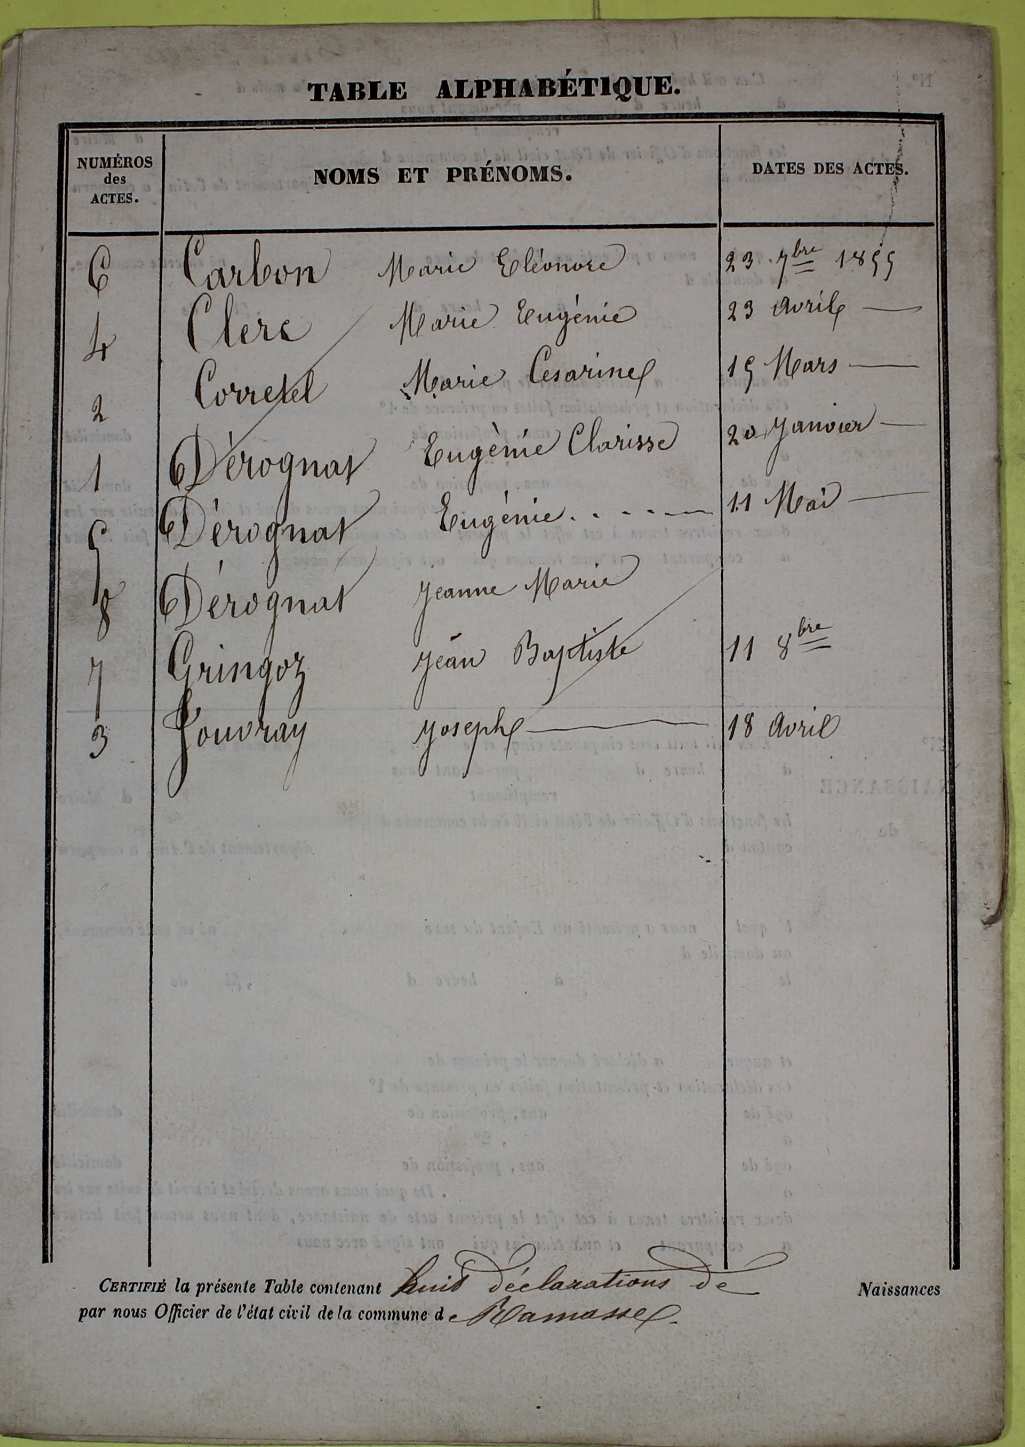 TABLE ALPHABÉTIQUE.
NUMÉROS des ACTES. NOMS ET PRÉNOMS. DATES DES ACTES.
6 Carbon Marie Eléonore 23 7bre 1855
4 Clerc Marie Eugénie 23 avril —
2 Corretel Marie Cesarine 15 Mars —
1 Dérognat Eugénie Clarisse 20 Janvier —
5 Dérognat Eugénie . . . . . — 11 Mai —
8 Dérognat Jeanne Marie
7 Gringoz Jean Baptiste 11 8bre
3 Jouvray Joseph — 18 avril
CERTIFIÉ la présente Table contenant huit déclarations de Naissances
par nous Officier de l'état civil de la commune de Ramasse.